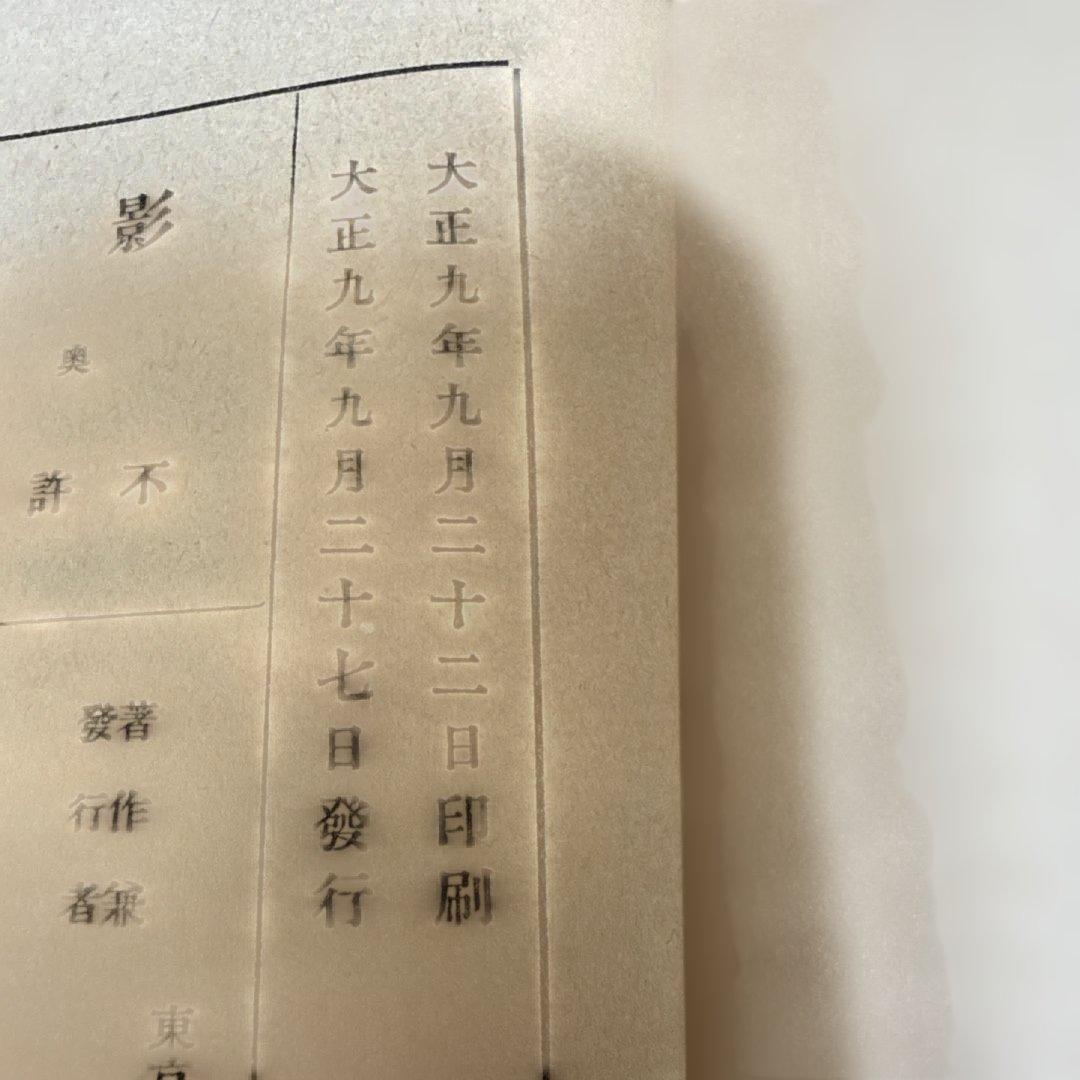 大正九年九月二十二日印刷
大正九年九月二十七日發行
影
奥
不許
著作兼
發行者
東京